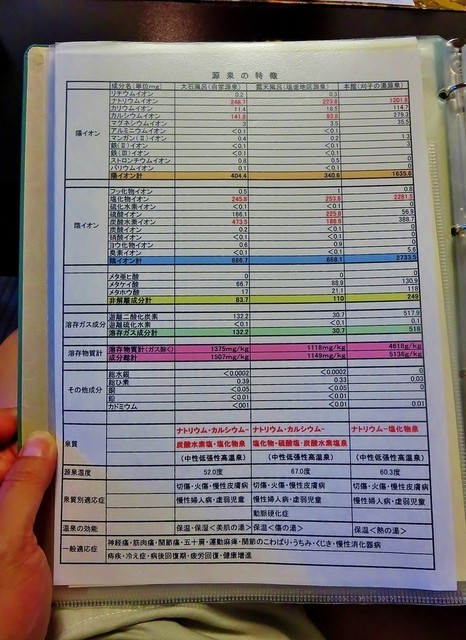 源泉の特徴
成分名(単位mg) 大石風呂(自家源泉) 露天風呂(塩釜地区源泉) 本館(刈子の湯源泉)
陽イオン
リチウムイオン 0.2 0.3
ナトリウムイオン 246.7 223.8 1201.8
カリウムイオン 11.4 16.5 114.7
カルシウムイオン 141.8 93.8 279.3
マグネシウムイオン 3 3.5 35.5
アルミニウムイオン <0.1 <0.1
マンガン(Ⅱ)イオン 0.4 0.2 1.3
鉄(Ⅱ)イオン <0.1 <0.1 3
鉄(Ⅲ)イオン <0.1 <0.1
ストロンチウムイオン 0.8 0.5 0
バリウムイオン 0.1 <0.1 0
陽イオン計 404.4 340.6 1635.6
陰イオン
フッ化物イオン 0.5 1 0.8
塩化物イオン 245.8 253.8 2281.5
硫化水素イオン <0.1 <0.1 0
硫酸イオン 166.1 225.8 56.9
炭酸水素イオン 473.5 186.6 388.7
炭酸イオン 0.2 <0.1 0
硝酸イオン <0.1 <0.1 0
ヨウ化物イオン 0.6 0.9 0
臭素イオン <0.1 <0.1 5.6
陰イオン計 886.7 668.1 2733.5
メタ亜ヒ酸 0 0 0
メタケイ酸 66.7 88.9 130.9
メタホウ酸 17 21.1 118
非解離成分計 83.7 110 249
溶存ガス成分
遊離二酸化炭素 132.2 30.7 517.9
遊離硫化水素 <0.1 <0.1 0.1
溶存ガス成分計 132.2 30.7 518
溶存物質計
溶存物質計(ガス除く) 1375mg/kg 1118mg/kg 4618g/kg
成分総計 1507mg/kg 1149mg/kg 5136g/kg
その他成分
総水銀 <0.0002 <0.0002 0
総ひ素 0.39 0.33 0.03
銅 <0.05 <0.05 0
鉛 <0.01 <0.01 0
カドミウム <001 <0.01 0.01
泉質
ナトリウム・カルシウム− ナトリウム・カルシウム− ナトリウム−塩化物泉
炭酸水素塩・塩化物泉 塩化物・硫酸塩・炭酸水素塩泉
(中性低張性高温泉) (中性低張性高温泉) (中性低張性高温泉)
源泉温度 52.0度 67.0度 60.3度
泉質別適応症
切傷・火傷・慢性皮膚病 切傷・火傷・慢性皮膚病 切傷・火傷・慢性皮膚病
慢性婦人病・虚弱児童 慢性婦人病・虚弱児童 慢性婦人病・虚弱児童
動脈硬化症
温泉の効能 保温・保湿<美肌の湯> 保温<傷の湯> 保温<熱の湯>
一般適応症
神経痛・筋肉痛・関節痛・五十肩・運動麻痺・関節のこわばり・うちみ・くじき・慢性消化器病
痔疾・冷え症・病後回復期・疲労回復・健康増進